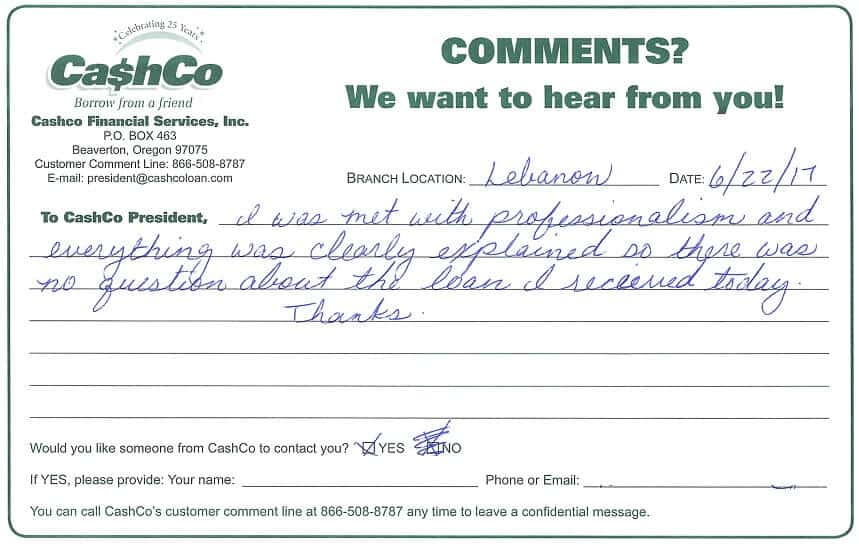 Celebrating 25 Years
Ca$hCo
Borrow from a friend
Cashco Financial Services, Inc.
P.O. BOX 463
Beaverton, Oregon 97075
Customer Comment Line: 866-508-8787
E-mail: president@cashcoloan.com
COMMENTS?
We want to hear from you!
BRANCH LOCATION: Lebanon DATE: 6/22/17
To CashCo President, I was met with professionalism and
everything was clearly explained so there was
no question about the loan I receieved today.
Thanks.
Would you like someone from CashCo to contact you? YES NO
If YES, please provide: Your name: Phone or Email:
You can call CashCo's customer comment line at 866-508-8787 any time to leave a confidential message.